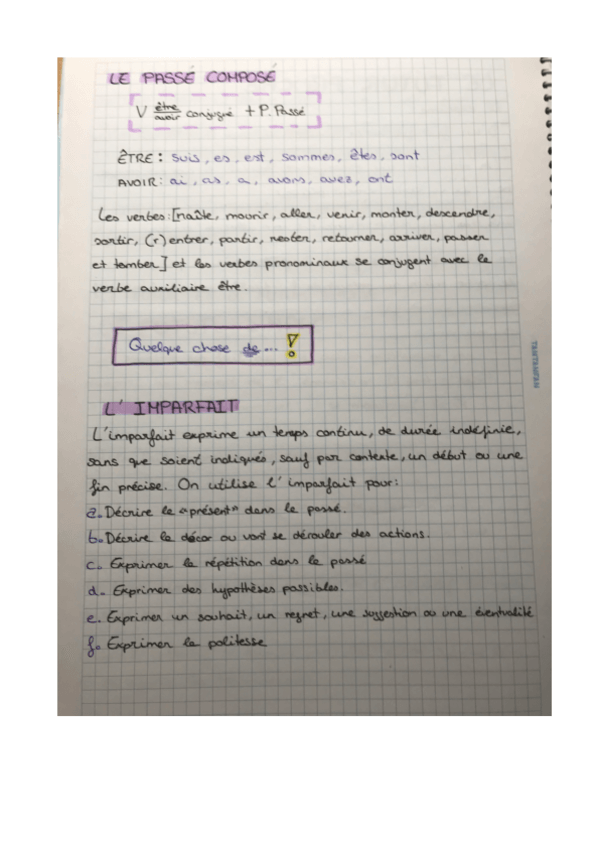 LE PASSÉ COMPOSÉ
V être/avoir conjugué + P. Passé
ÊTRE : suis, es, est, sommes, êtes, sont
AVOIR: ai, as, a, avons, avez, ont
Les verbes: [naître, mourir, aller, venir, monter, descendre,
sortir, (r)entrer, partir, rester, retourner, arriver, passer
et tomber] et les verbes pronominaux se conjugent avec le
verbe auxiliaire être.
Quelque chose de... !
L'IMPARFAIT
L'imparfait exprime un temps continu, de durée indéfinie,
sans que soient indiqués, sauf par contexte, un début ou une
fin précise. On utilise l'imparfait pour:
a. Décrire le "présent" dans le passé.
b. Décrire le décor ou vont se dérouler des actions.
c. Exprimer la répétition dans le passé
d. Exprimer des hypothèses possibles.
e. Exprimer un souhait, un regret, une suggestion ou une éventualité
f. Exprimer la politesse